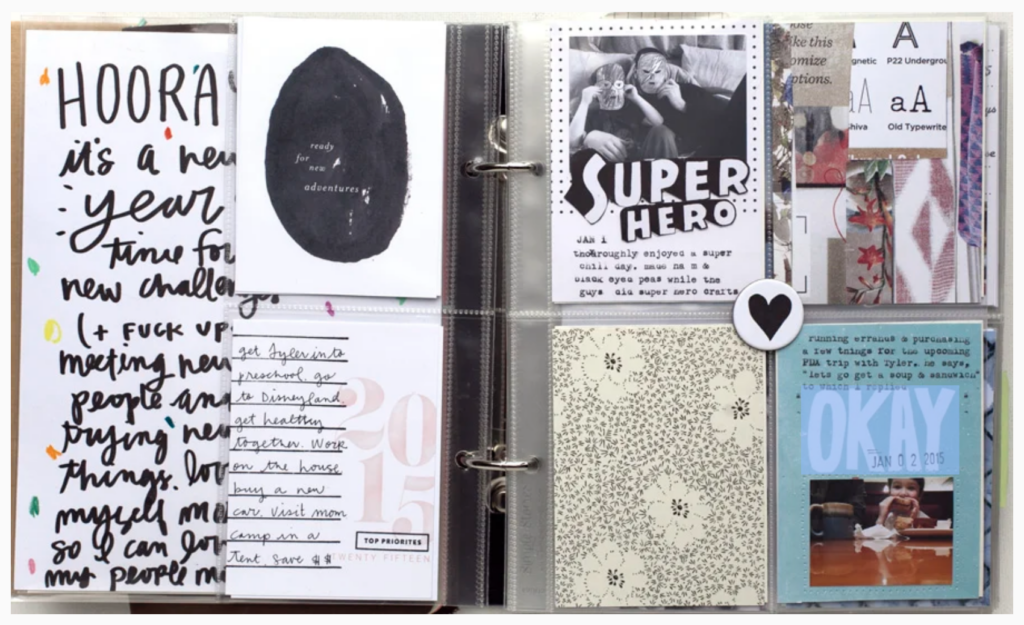 HOORA
it's a new
year
time for
new challeng
(+ FUCK UP
meeting new
people and
trying new
things. lov
myself mo
so I can lov
my people mo
ready
for
new
adventures
get Tyler into
preschool. go
to Disneyland.
get healthy
together. Work
on the house
buy a new
car. visit mom
camp in a
tent. save $$
2015
TOP PRIORITES
TWENTY FIFTEEN
SUPER
HERO
JAN 1
thoroughly enjoyed a super
chill day. made ham &
black eyed peas while the
guys did super hero crafts
ike this
omize
ptions.
gnetic
A
P22 Undergrou
aA
hiva
aA
Old Typewrite
running errands & purchasing
a few things for the upcoming
PDX trip with Tyler. he says,
"lets go get a soup & sandwich"
to which I replied
OKAY
JAN 02 2015